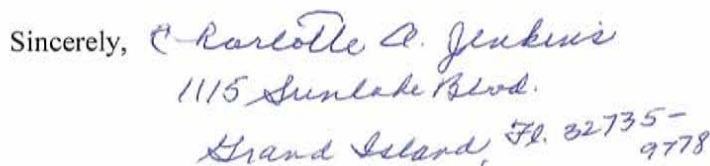 Sincerely, Charlotte A. Jenkins
1115 Sunlake Blvd.
Grand Island, Fl. 32735-
9778